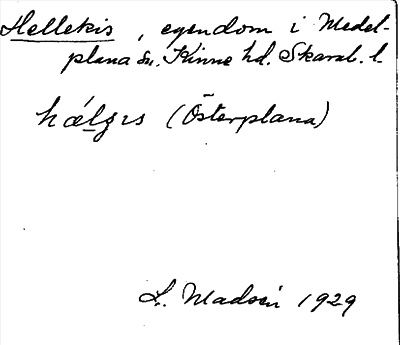 Hellekis, egendom i Medel-
plana sn. Kinne hd. Skarab. l.
hǽlgɪs (Österplana)
L. Madsén 1929